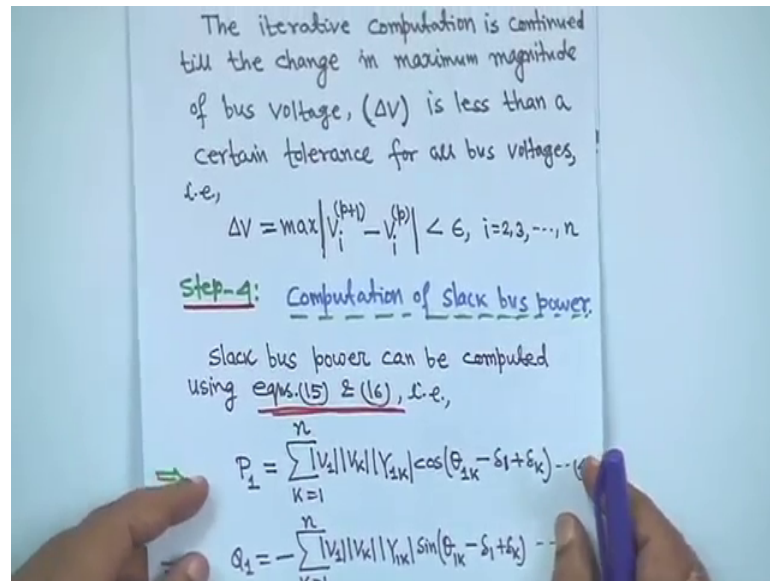 The iterative computation is continued
till the change in maximum magnitude
of bus voltage, (ΔV) is less than a
certain tolerance for all bus voltages,
i.e,
ΔV = max|V_i^(p+1) - V_i^(p)| < ε, i=2,3,---,n
Step-4: Computation of slack bus power.
Slack bus power can be computed
using eqns.(15) & (16), i.e.,
⇒ P_1 = \sum_{K=1}^{n} |V_1||V_K||Y_{1K}| cos(θ_{1K} - δ_1 + δ_K) ---
Q_1 = - \sum_{K=1}^{n} |V_1||V_K||Y_{1K}| sin(θ_{1K} - δ_1 + δ_K) ---